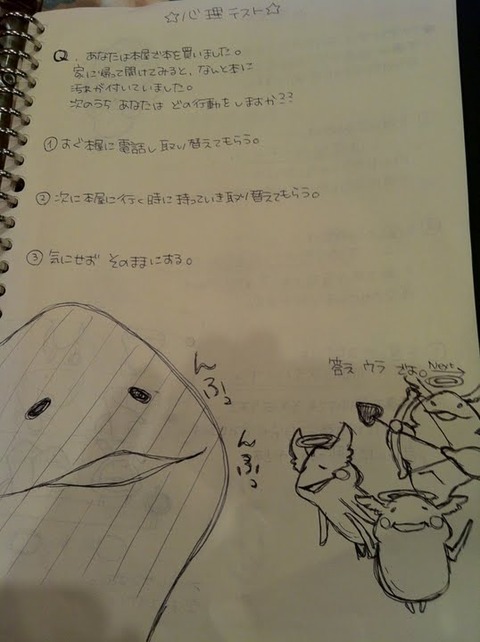 ☆心理テスト☆
Q. あなたは本屋で本を買いました。
家に帰って開けてみると、なんと本に
汚れが付いていました。
次のうち あなたは どの行動をしますか??
① すぐ本屋に電話し取り替えてもらう。
② 次に本屋に行く時に持っていき取り替えてもらう。
③ 気にせず そのままにする。
んふっ
んふっ
答え ウラ でぉ。
Next